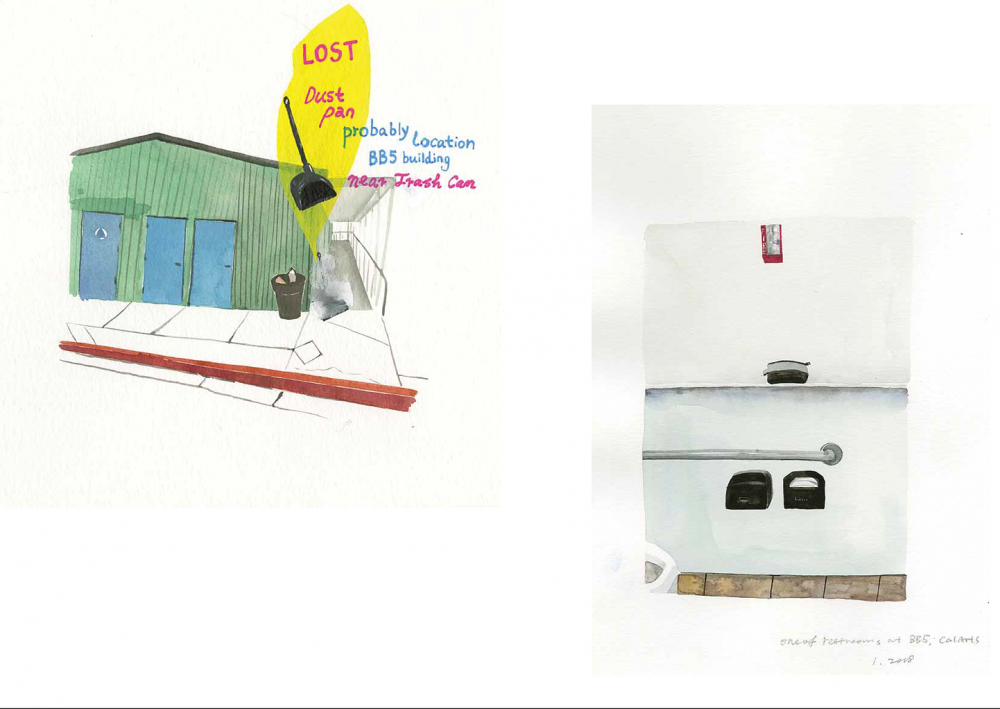 LOST
Dust
pan
probably Location
BB5 building
near Trash Can
one of restrooms at BB5, CalArts
1. 2018